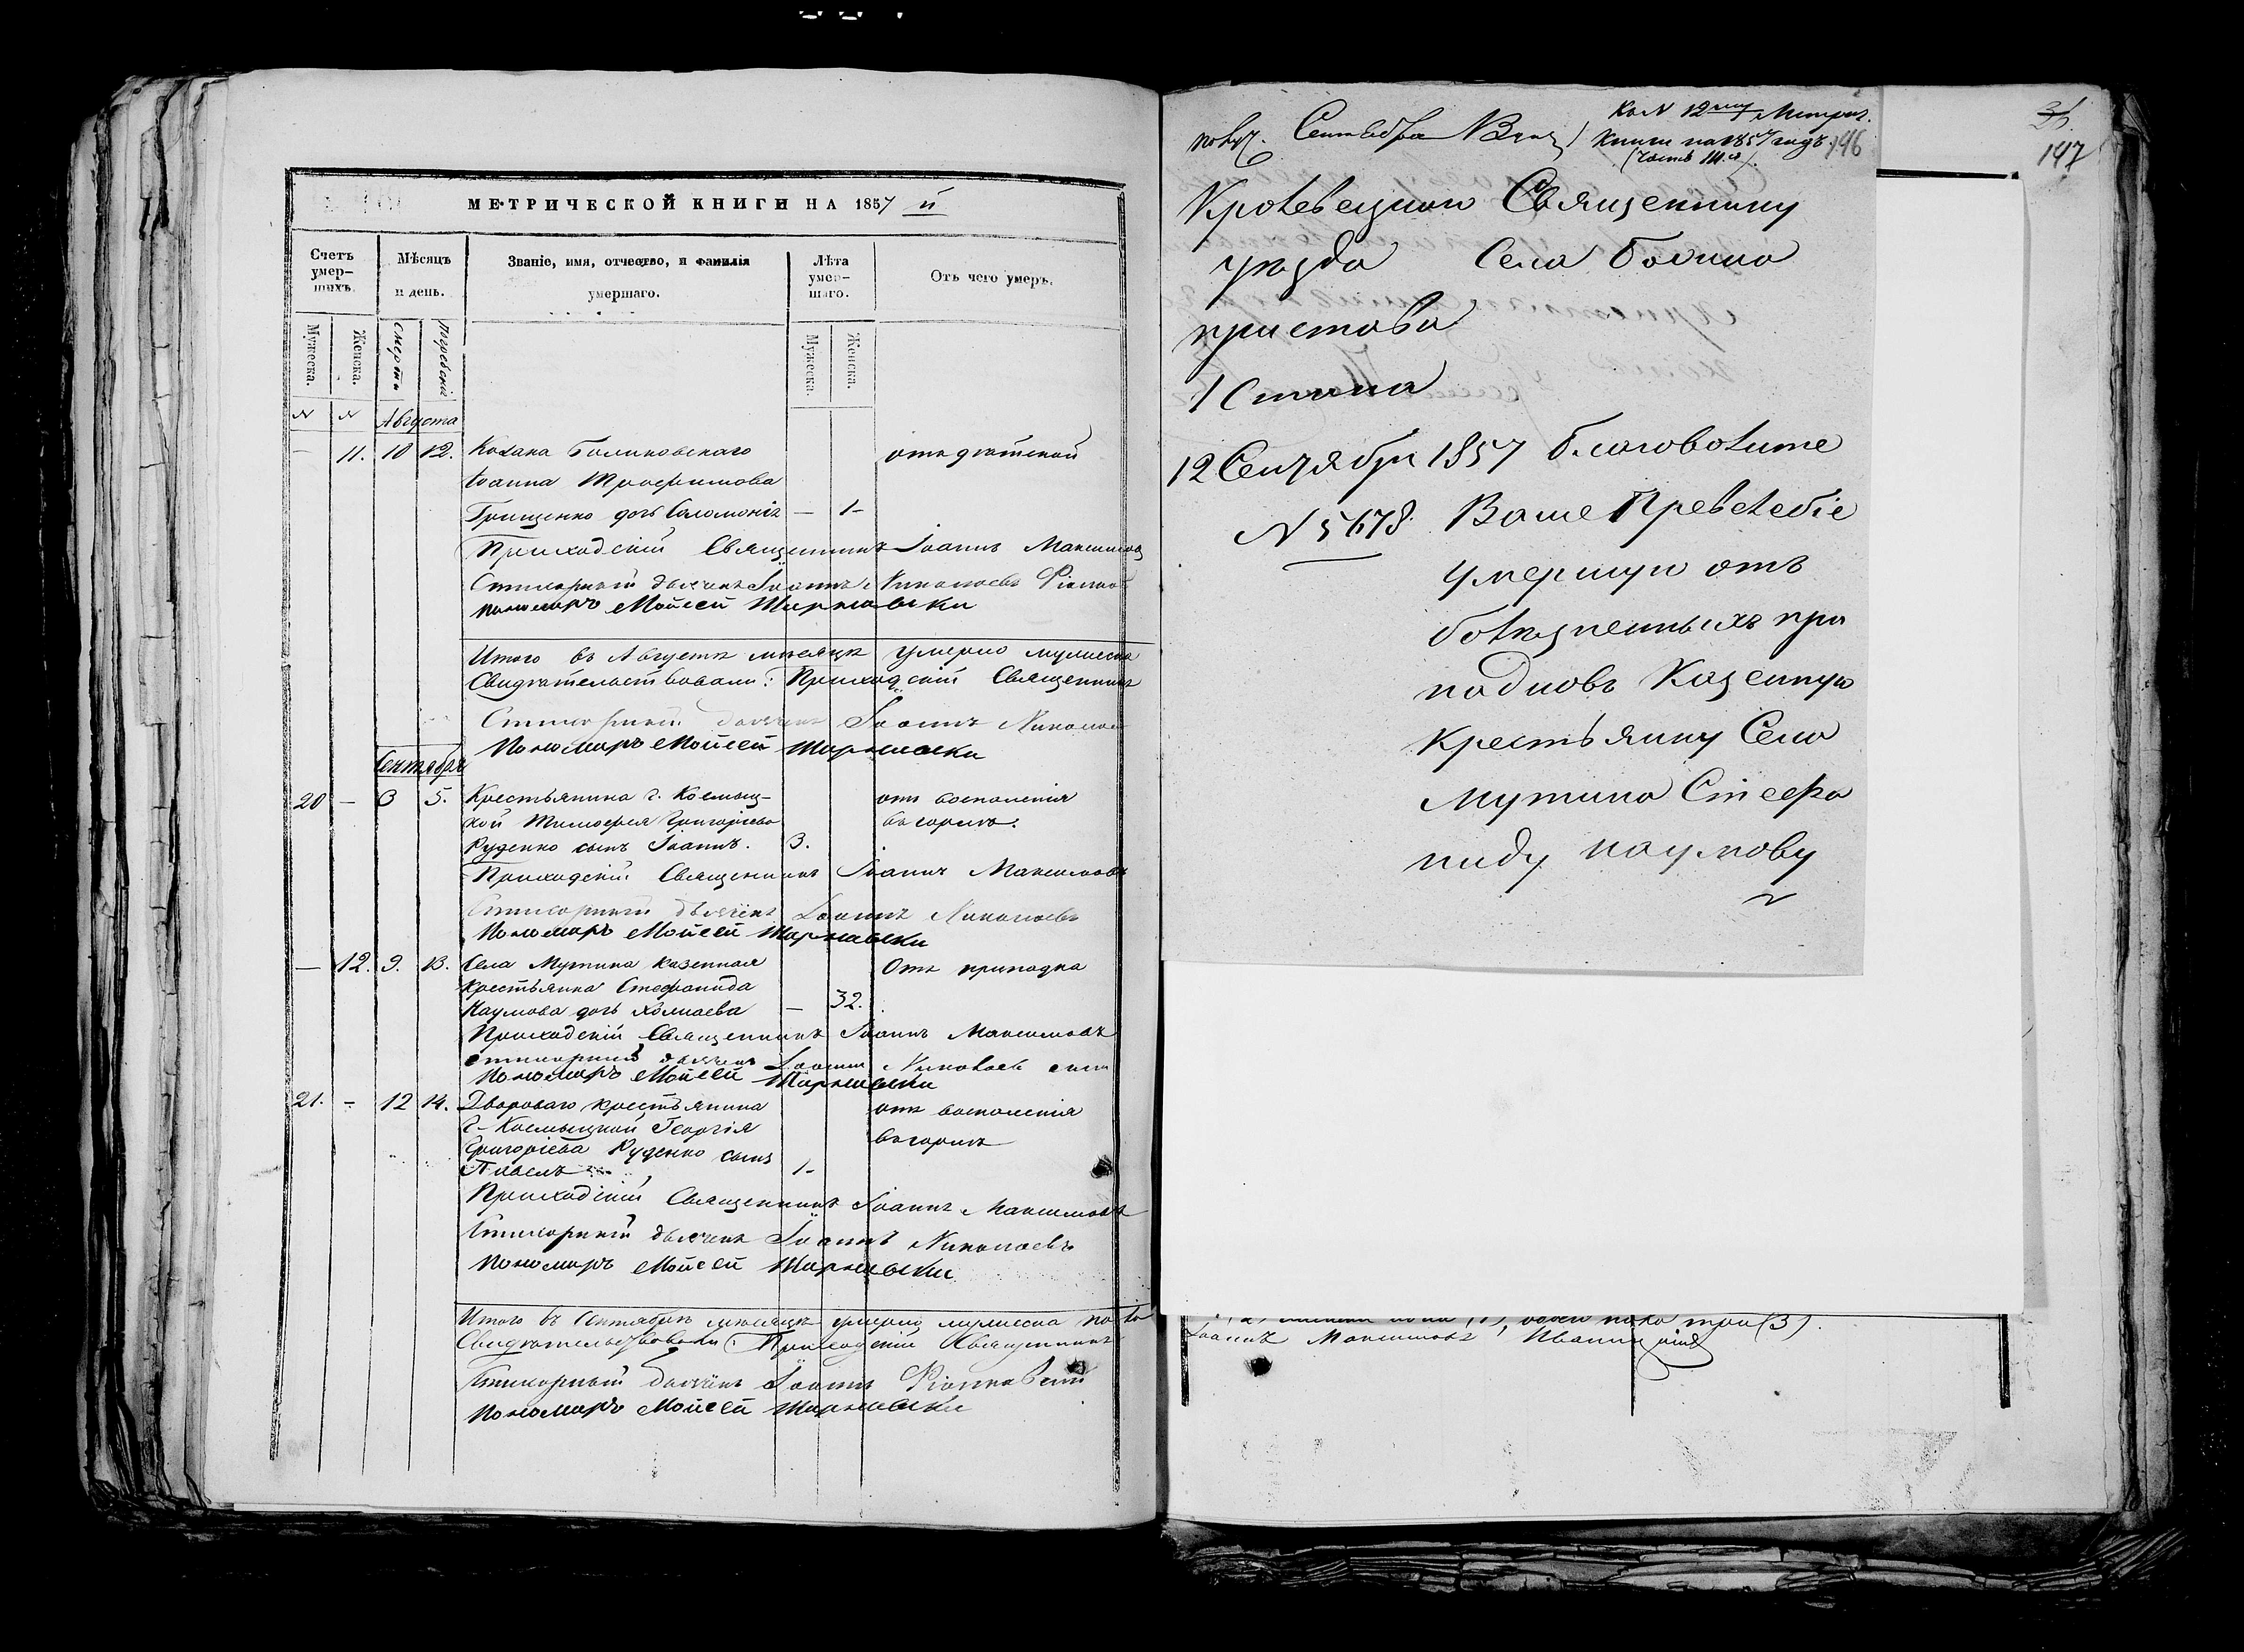 МЕТРИЧЕСКОЙ КНИГИ НА 1857 й
Счетъ умер-шихъ.
Мѣсяцъ и день.
Званіе, имя, отчество, и фамилія умершаго.
Лѣта умер-шаго.
Отъ чего умеръ.
Мужеска.
Женска.
Смерти
Погребенія
Мужеска.
Женска.
N N Августа
— 11. 10 12. Козака Голиковскаго отъ дѣтской
Іоанна Трофимова
Грищенко дочь Соломонія — 1
Приходскій Священникъ Іоаннъ Максимов
Стихарный дьячекъ Іоаннъ Николаевъ
пономарь Мойсей
Итого въ Августѣ мѣсяцѣ умерло мужеска
Свидѣтельствовали: Приходскій Священникъ
Стихарный дьячекъ Іоаннъ Николае
Пономарь Мойсей
Сентября
20 — 3 5. Крестьянина г. отъ воспаленія
Тимофея Григоріева въ горлѣ.
Руденко сынъ Іоаннъ. 3.
Приходскій Священникъ Іоаннъ Максимовъ
Стихарный дьячекъ Іоаннъ Николаевъ
Пономарь Мойсей
— 12. 9. 13. Села Мутина казенная Отъ припадка
крестьянка Стефанида
Наумова дочь — 32.
Приходскій Священникъ Іоаннъ Максимовъ
Стихарный дьячекъ Іоаннъ Николаевъ
Пономарь Мойсей
21. — 12 14. Двороваго крестьянина отъ воспаленія
г. Георгія
Григоріева Руденко сынъ въ горлѣ
Павелъ 1
Приходскій Священникъ Іоаннъ Максимовъ
Стихарный дьячекъ Іоаннъ Николаевъ
Пономарь Мойсей
Итого въ Сентябрѣ мѣсяцѣ умерло мужеска пола
Свидѣтельствовали: Приходскій Священникъ
Стихарный дьячекъ Іоаннъ
Пономарь Мойсей
Къ N 12му Метрич.
Книги на 1857 годъ.
(Часть III.я).
146
147
Сентября
Священнику
уѣзда Села
пристава
1 Стана
12 Сентября 1857 благоволите
N 5678. Ваше
умершую отъ
болѣзненныхъ при
падковъ Казенную
Крестьянку Села
Мутина Стефа
ниду Наумову
(3).
Іоаннъ Максимовъ